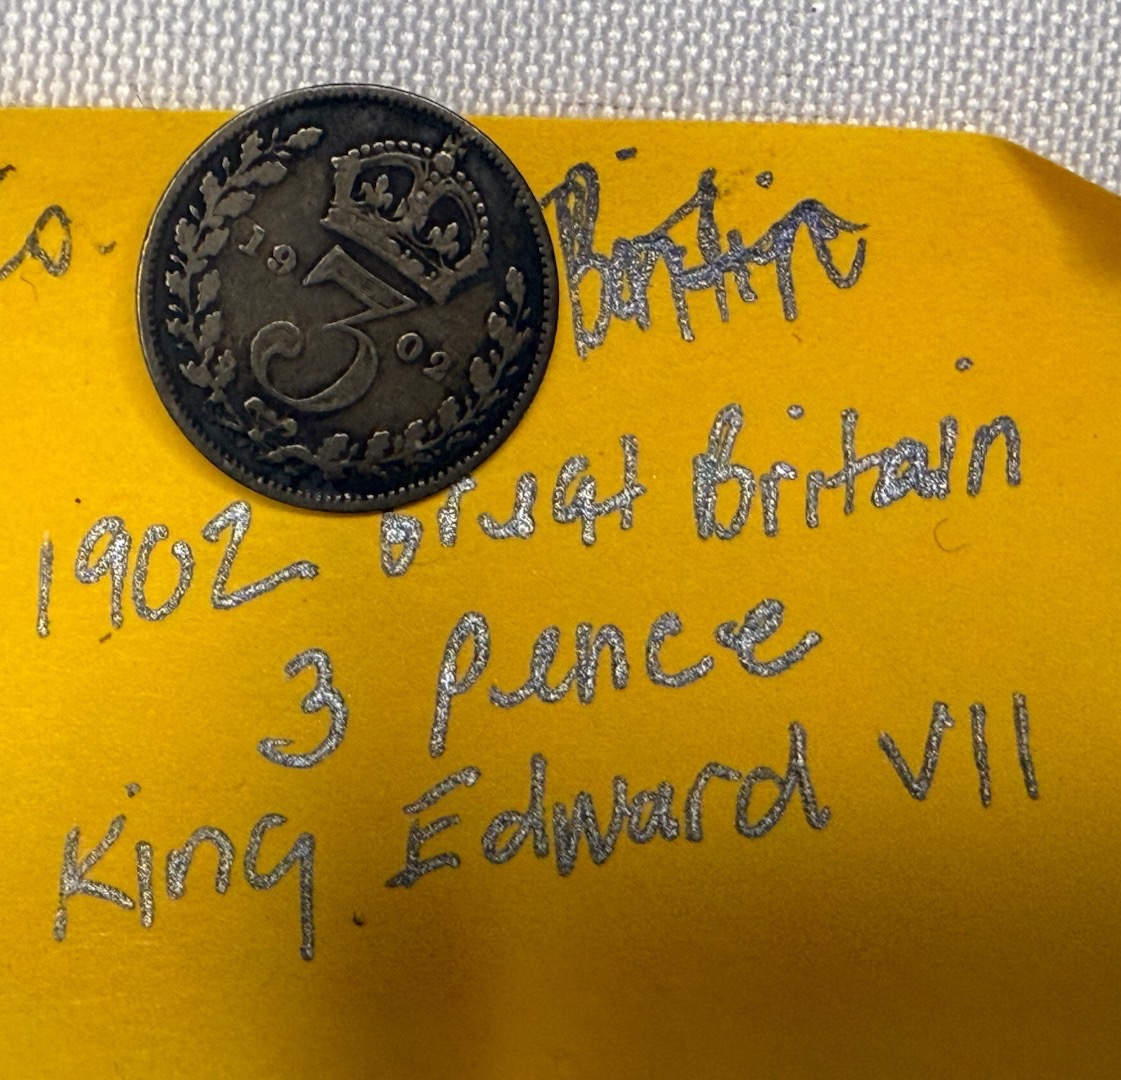 19 3 02
1902 Great Britain
3 Pence
King Edward VII